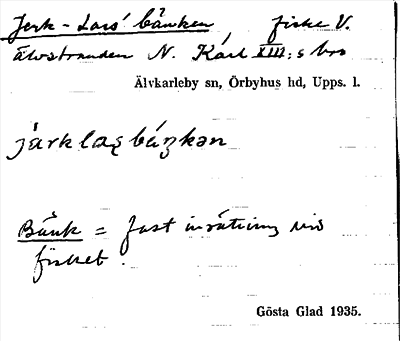 Jerk-Lars' bänken fiske V.
älvstranden N. Karl XIII:s bro
Älvkarleby sn, Örbyhus hd, Upps. l.
järklasbäŋkən
Bänk = fast inrättning vid
fisket.
Gösta Glad 1935.